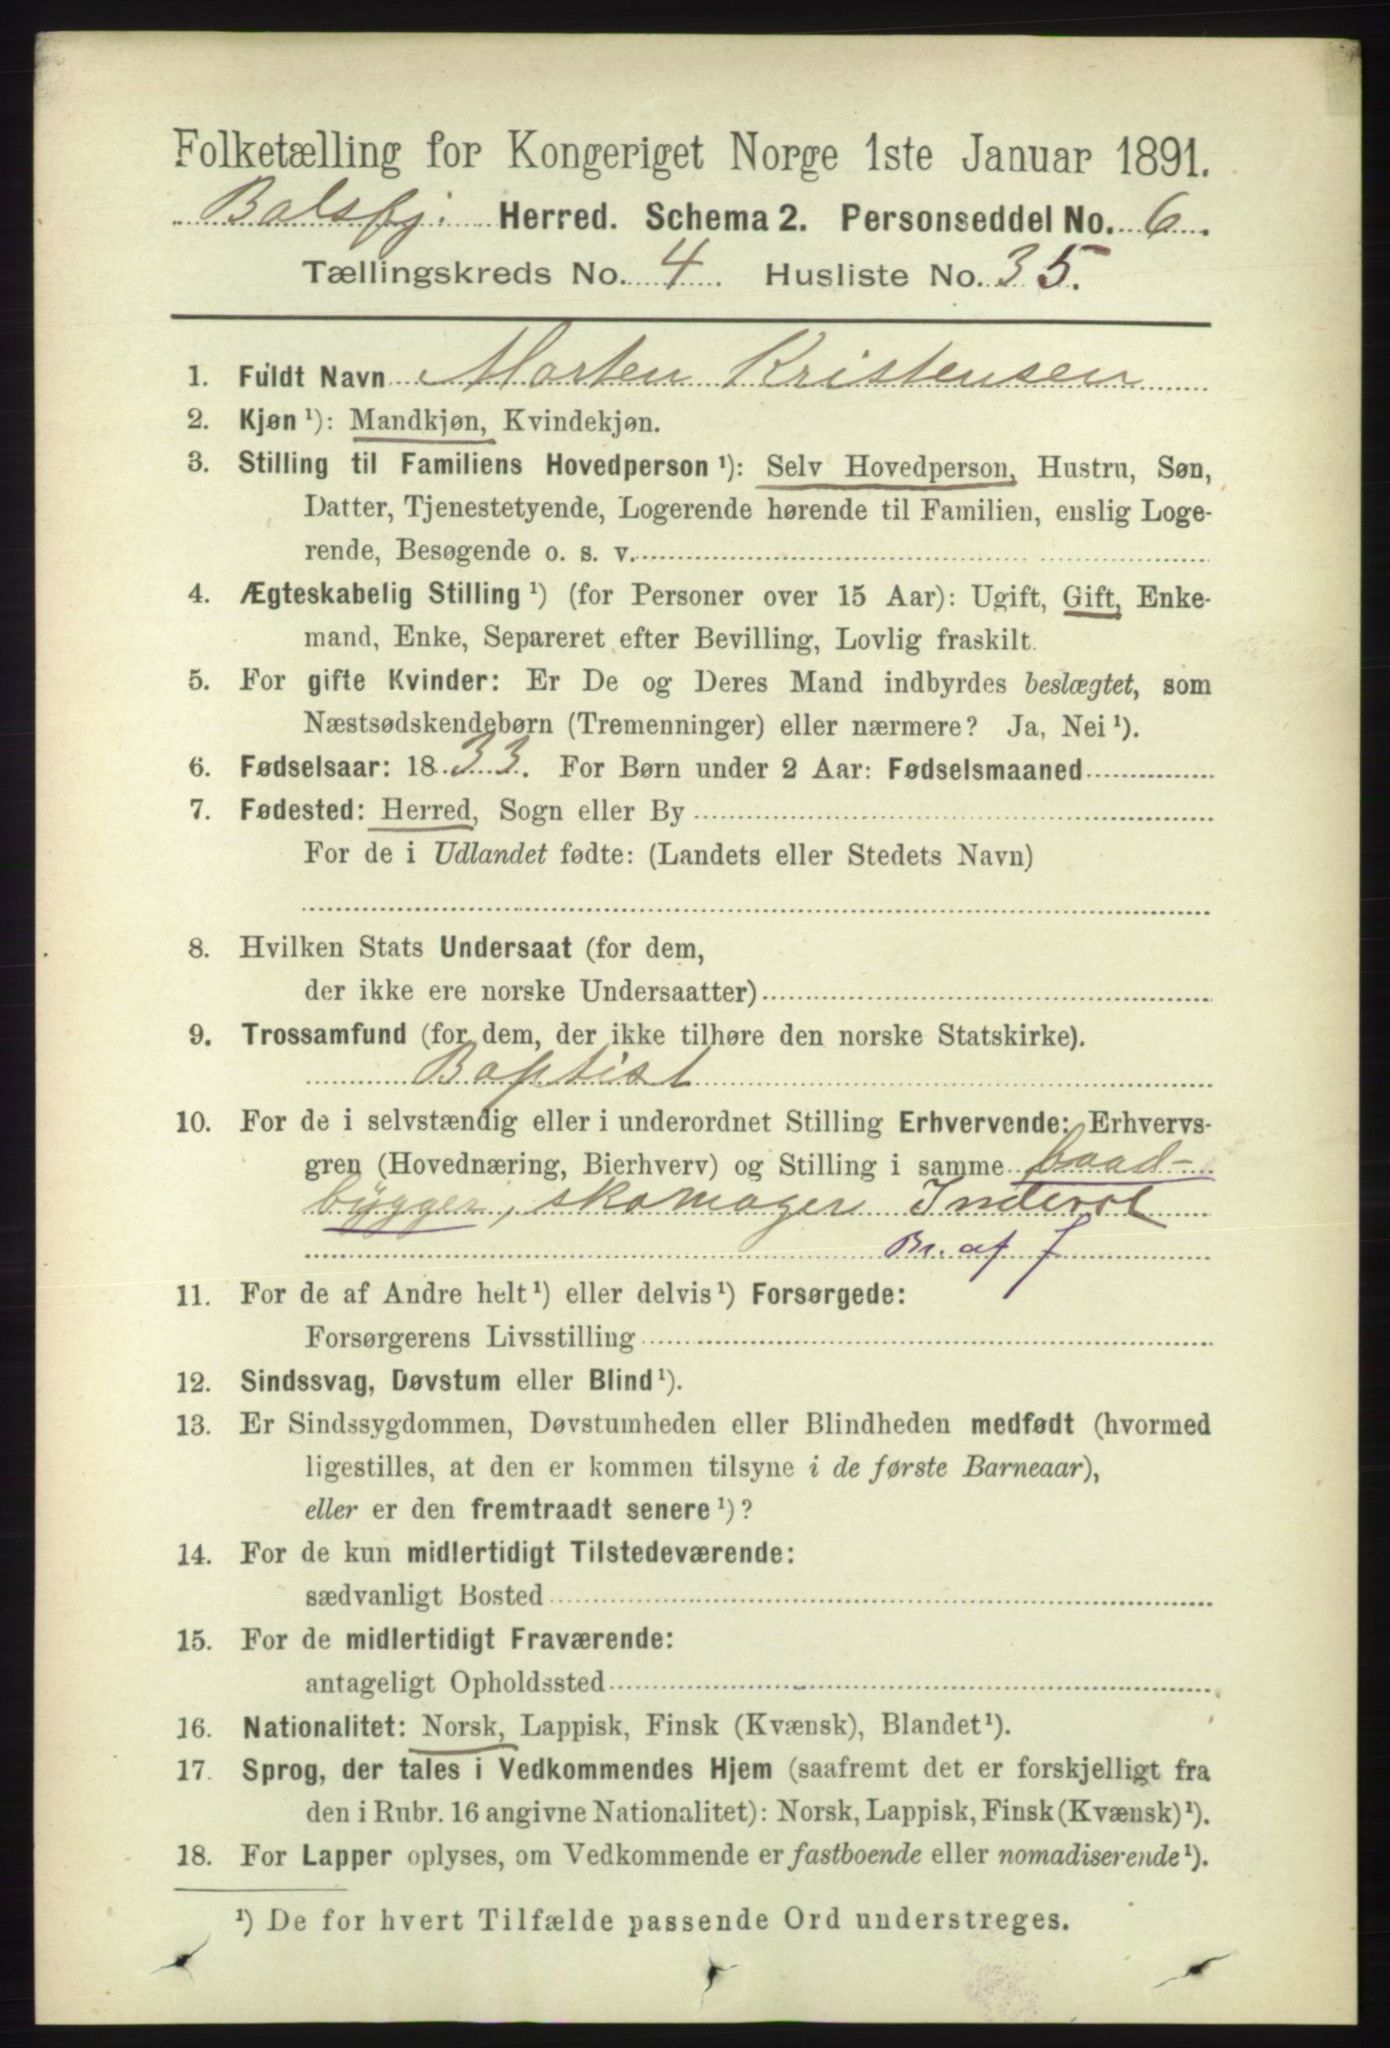 Folketælling for Kongeriget Norge 1ste Januar 1891.
Balsfj. Herred. Schema 2. Personseddel No. 6.
Tællingskreds No. 4 Husliste No. 35.
1. Fuldt Navn Morten Kristensen
2. Kjøn ¹): Mandkjøn, Kvindekjøn.
3. Stilling til Familiens Hovedperson ¹): Selv Hovedperson, Hustru, Søn,
Datter, Tjenestetyende, Logerende hørende til Familien, enslig Loge-
rende, Besøgende o. s. v.
4. Ægteskabelig Stilling ¹) (for Personer over 15 Aar): Ugift, Gift, Enke-
mand, Enke, Separeret efter Bevilling, Lovlig fraskilt.
5. For gifte Kvinder: Er De og Deres Mand indbyrdes beslægtet, som
Næstsødskendebørn (Tremenninger) eller nærmere? Ja, Nei ¹).
6. Fødselsaar: 1833. For Børn under 2 Aar: Fødselsmaaned
7. Fødested: Herred, Sogn eller By
For de i Udlandet fødte: (Landets eller Stedets Navn)
8. Hvilken Stats Undersaat (for dem,
der ikke ere norske Undersaatter)
9. Trossamfund (for dem, der ikke tilhøre den norske Statskirke).
Baptist
10. For de i selvstændig eller i underordnet Stilling Erhvervende: Erhvervs-
gren (Hovednæring, Bierhverv) og Stilling i samme baad-
bygger, skomager
Br. af 7
11. For de af Andre helt ¹) eller delvis ¹) Forsørgede:
Forsørgerens Livsstilling
12. Sindssvag, Døvstum eller Blind ¹).
13. Er Sindssygdommen, Døvstumheden eller Blindheden medfødt (hvormed
ligestilles, at den er kommen tilsyne i de første Barneaar),
eller er den fremtraadt senere ¹)?
14. For de kun midlertidigt Tilstedeværende:
sædvanligt Bosted
15. For de midlertidigt Fraværende:
antageligt Opholdssted
16. Nationalitet: Norsk, Lappisk, Finsk (Kvænsk), Blandet ¹).
17. Sprog, der tales i Vedkommendes Hjem (saafremt det er forskjelligt fra
den i Rubr. 16 angivne Nationalitet): Norsk, Lappisk, Finsk (Kvænsk) ¹).
18. For Lapper oplyses, om Vedkommende er fastboende eller nomadiserende ¹).
¹) De for hvert Tilfælde passende Ord understreges.